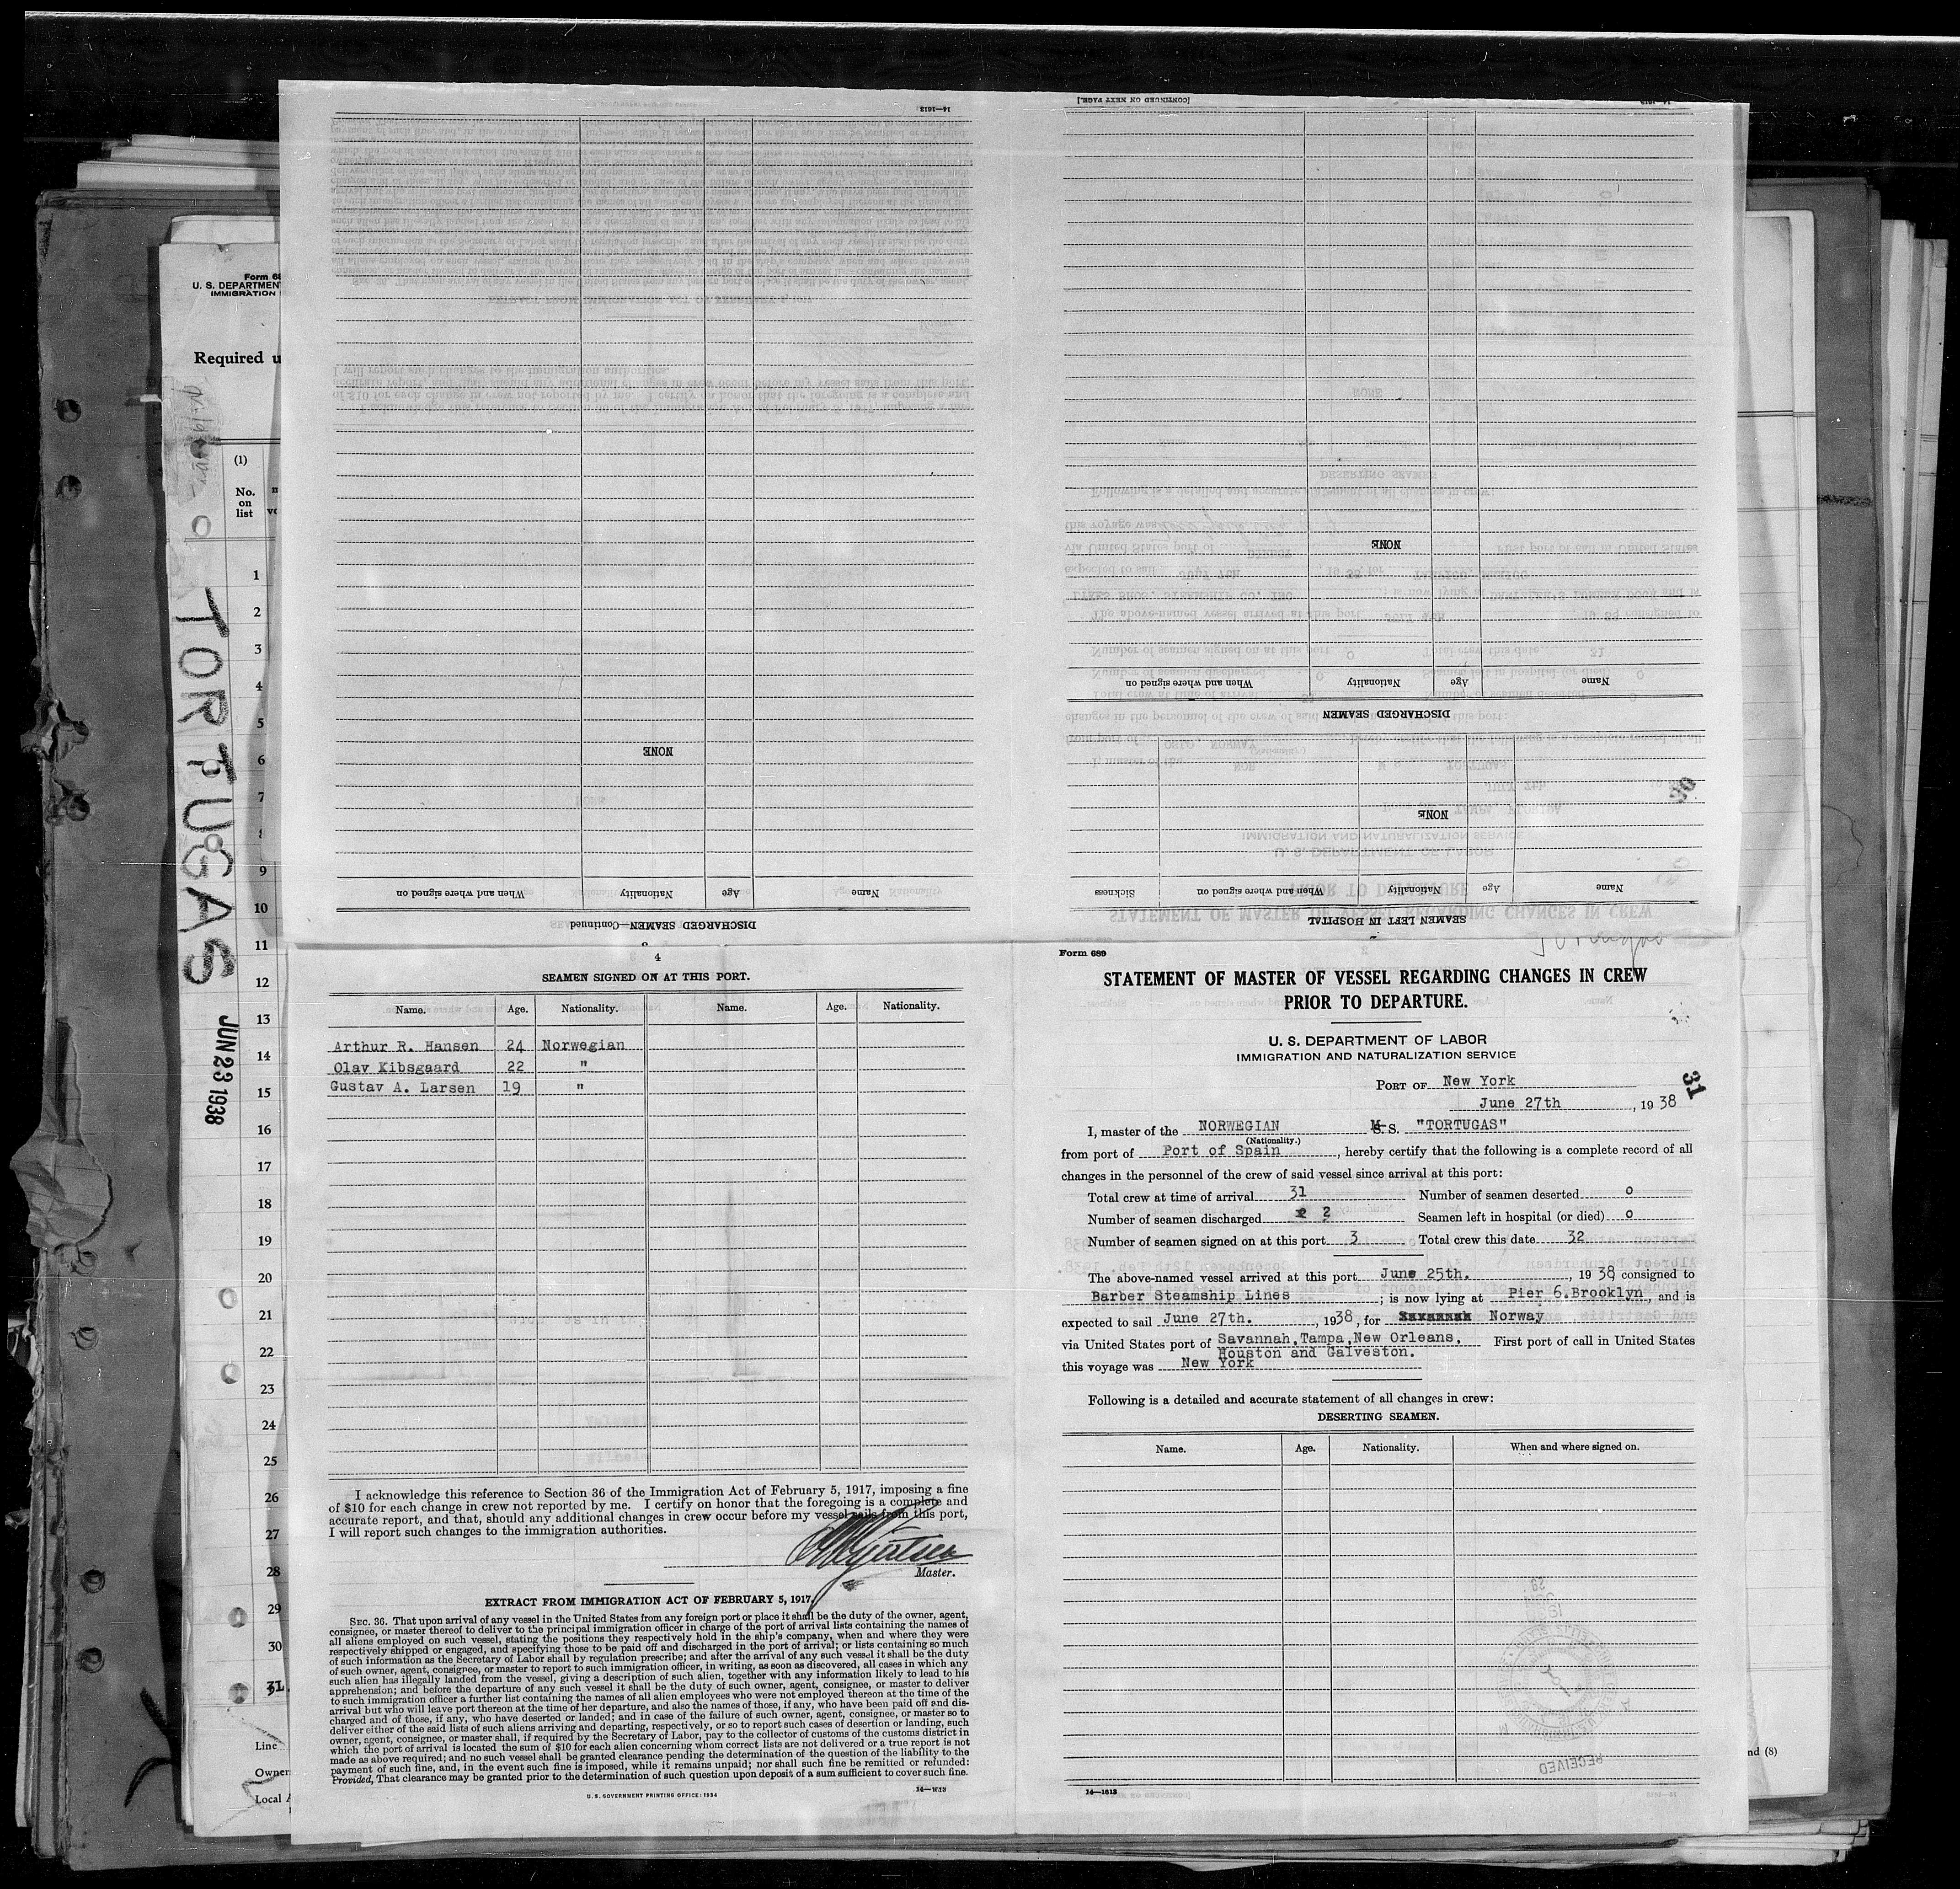 Form 68
U. S. DEPARTMENT
IMMIGRATION
Required u
(1)
No.
on
list
1
2
3
4
5
6
7
8
9
10
11
12
13
14
15
16
17
18
19
20
21
22
23
24
25
26
27
28
29
30
31.
Line
Owner
Local A
TORTUGAS
JUN 23 1938
14—1613
NONE
When and where signed on
Nationality
Age
Name
DISCHARGED SEAMEN—Continued
3
[CONTINUED ON NEXT PAGE.]
14—1613
NONE
When and where signed on
Nationality
Age
Name
DISCHARGED SEAMEN
NONE
Sickness
When and where signed on
Nationality
Age
Name
SEAMEN LEFT IN HOSPITAL
2
4
SEAMEN SIGNED ON AT THIS PORT.
Name. Age. Nationality. Name. Age. Nationality.
Arthur R. Hansen 24 Norwegian
Olav Kibsgaard 22 "
Gustav A. Larsen 19 "
I acknowledge this reference to Section 36 of the Immigration Act of February 5, 1917, imposing a fine
of $10 for each change in crew not reported by me. I certify on honor that the foregoing is a complete and
accurate report, and that, should any additional changes in crew occur before my vessel sails from this port,
I will report such changes to the immigration authorities.
Master.
EXTRACT FROM IMMIGRATION ACT OF FEBRUARY 5, 1917.
SEC. 36. That upon arrival of any vessel in the United States from any foreign port or place it shall be the duty of the owner, agent,
consignee, or master thereof to deliver to the principal immigration officer in charge of the port of arrival lists containing the names of
all aliens employed on such vessel, stating the positions they respectively hold in the ship's company, when and where they were
respectively shipped or engaged, and specifying those to be paid off and discharged in the port of arrival; or lists containing so much
of such information as the Secretary of Labor shall by regulation prescribe; and after the arrival of any such vessel it shall be the duty
of such owner, agent, consignee, or master to report to such immigration officer, in writing, as soon as discovered, all cases in which any
such alien has illegally landed from the vessel, giving a description of such alien, together with any information likely to lead to his
apprehension; and before the departure of any such vessel it shall be the duty of such owner, agent, consignee, or master to deliver
to such immigration officer a further list containing the names of all alien employees who were not employed thereon at the time of the
arrival but who will leave port thereon at the time of her departure, and also the names of those, if any, who have been paid off and dis-
charged and of those, if any, who have deserted or landed; and in case of the failure of such owner, agent, consignee, or master so to
deliver either of the said lists of such aliens arriving and departing, respectively, or so to report such cases of desertion or landing, such
owner, agent, consignee, or master shall, if required by the Secretary of Labor, pay to the collector of customs of the customs district in
which the port of arrival is located the sum of $10 for each alien concerning whom correct lists are not delivered or a true report is not
made as above required; and no such vessel shall be granted clearance pending the determination of the question of the liability to the
payment of such fine, and, in the event such fine is imposed, while it remains unpaid; nor shall such fine be remitted or refunded:
Provided, That clearance may be granted prior to the determination of such question upon deposit of a sum sufficient to cover such fine.
U. S. GOVERNMENT PRINTING OFFICE: 1934
14—1613
Form 689
STATEMENT OF MASTER OF VESSEL REGARDING CHANGES IN CREW
PRIOR TO DEPARTURE.
U. S. DEPARTMENT OF LABOR
IMMIGRATION AND NATURALIZATION SERVICE
PORT OF New York
31
June 27th, 1938
I, master of the NORWEGIAN M. S. "TORTUGAS"
(Nationality.)
from port of Port of Spain, hereby certify that the following is a complete record of all
changes in the personnel of the crew of said vessel since arrival at this port:
Total crew at time of arrival 31 Number of seamen deserted 0
Number of seamen discharged 2 Seamen left in hospital (or died) 0
Number of seamen signed on at this port 3 Total crew this date 32
The above-named vessel arrived at this port June 25th., 1938 consigned to
Barber Steamship Lines; is now lying at Pier 6.Brooklyn, and is
expected to sail June 27th., 1938, for Norway
via United States port of Savannah,Tampa,New Orleans, First port of call in United States
Houston and Galveston.
this voyage was New York
Following is a detailed and accurate statement of all changes in crew:
DESERTING SEAMEN.
Name. Age. Nationality. When and where signed on.
RECEIVED
14—1613
nd (8)